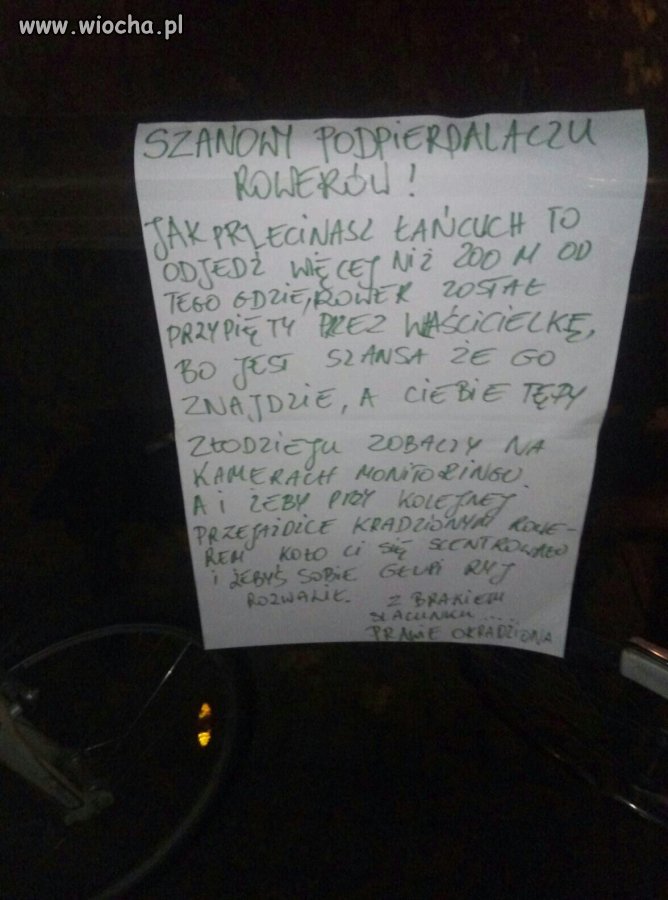 www.wiocha.pl
SZANOWY PODPIERDALACZU
ROWERÓW!
JAK PRZECINASZ ŁAŃCUCH TO
ODJEDŹ WIĘCEJ NIŻ 200 M OD
TEGO GDZIE, ROWER ZOSTAŁ
PRZYPIĘTY PRZEZ WŁAŚCICIELKĘ,
BO JEST SZANSA ŻE GO
ZNAJDZIE, A CIEBIE TĘPY
ZŁODZIEJU ZOBACZY NA
KAMERACH MONITORINGU.
A I ŻEBY PRZY KOLEJNEJ
PRZEJAŻDŻCE KRADZIONYM ROWE-
REM KOŁO CI SIĘ SCENTROWAŁO
I ŻEBYŚ SOBIE GŁUPI RYJ
ROZWALIŁ. Z BRAKIEM
SZACUNKU....
PRAWIE OKRADZIONA